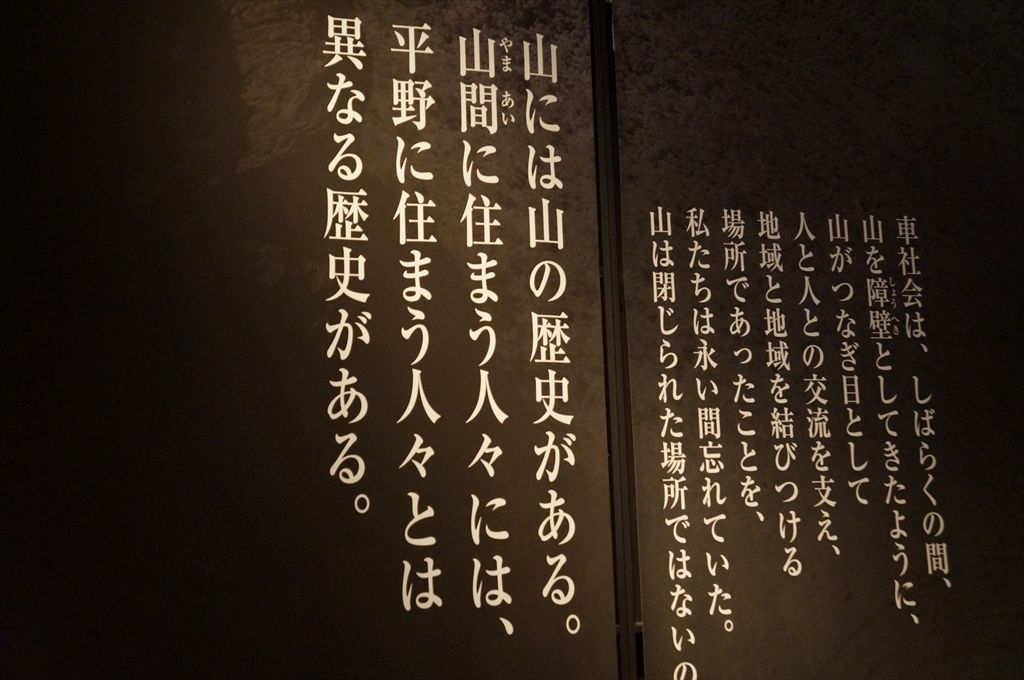 車社会は、しばらくの間、
山を障壁としてきたように、
しょうへき
山がつなぎ目として
人と人との交流を支え、
地域と地域を結びつける
場所であったことを、
私たちは永い間忘れていた。
山は閉じられた場所ではないの
山には山の歴史がある。
山間に住まう人々には、
やまあい
平野に住まう人々とは
異なる歴史がある。